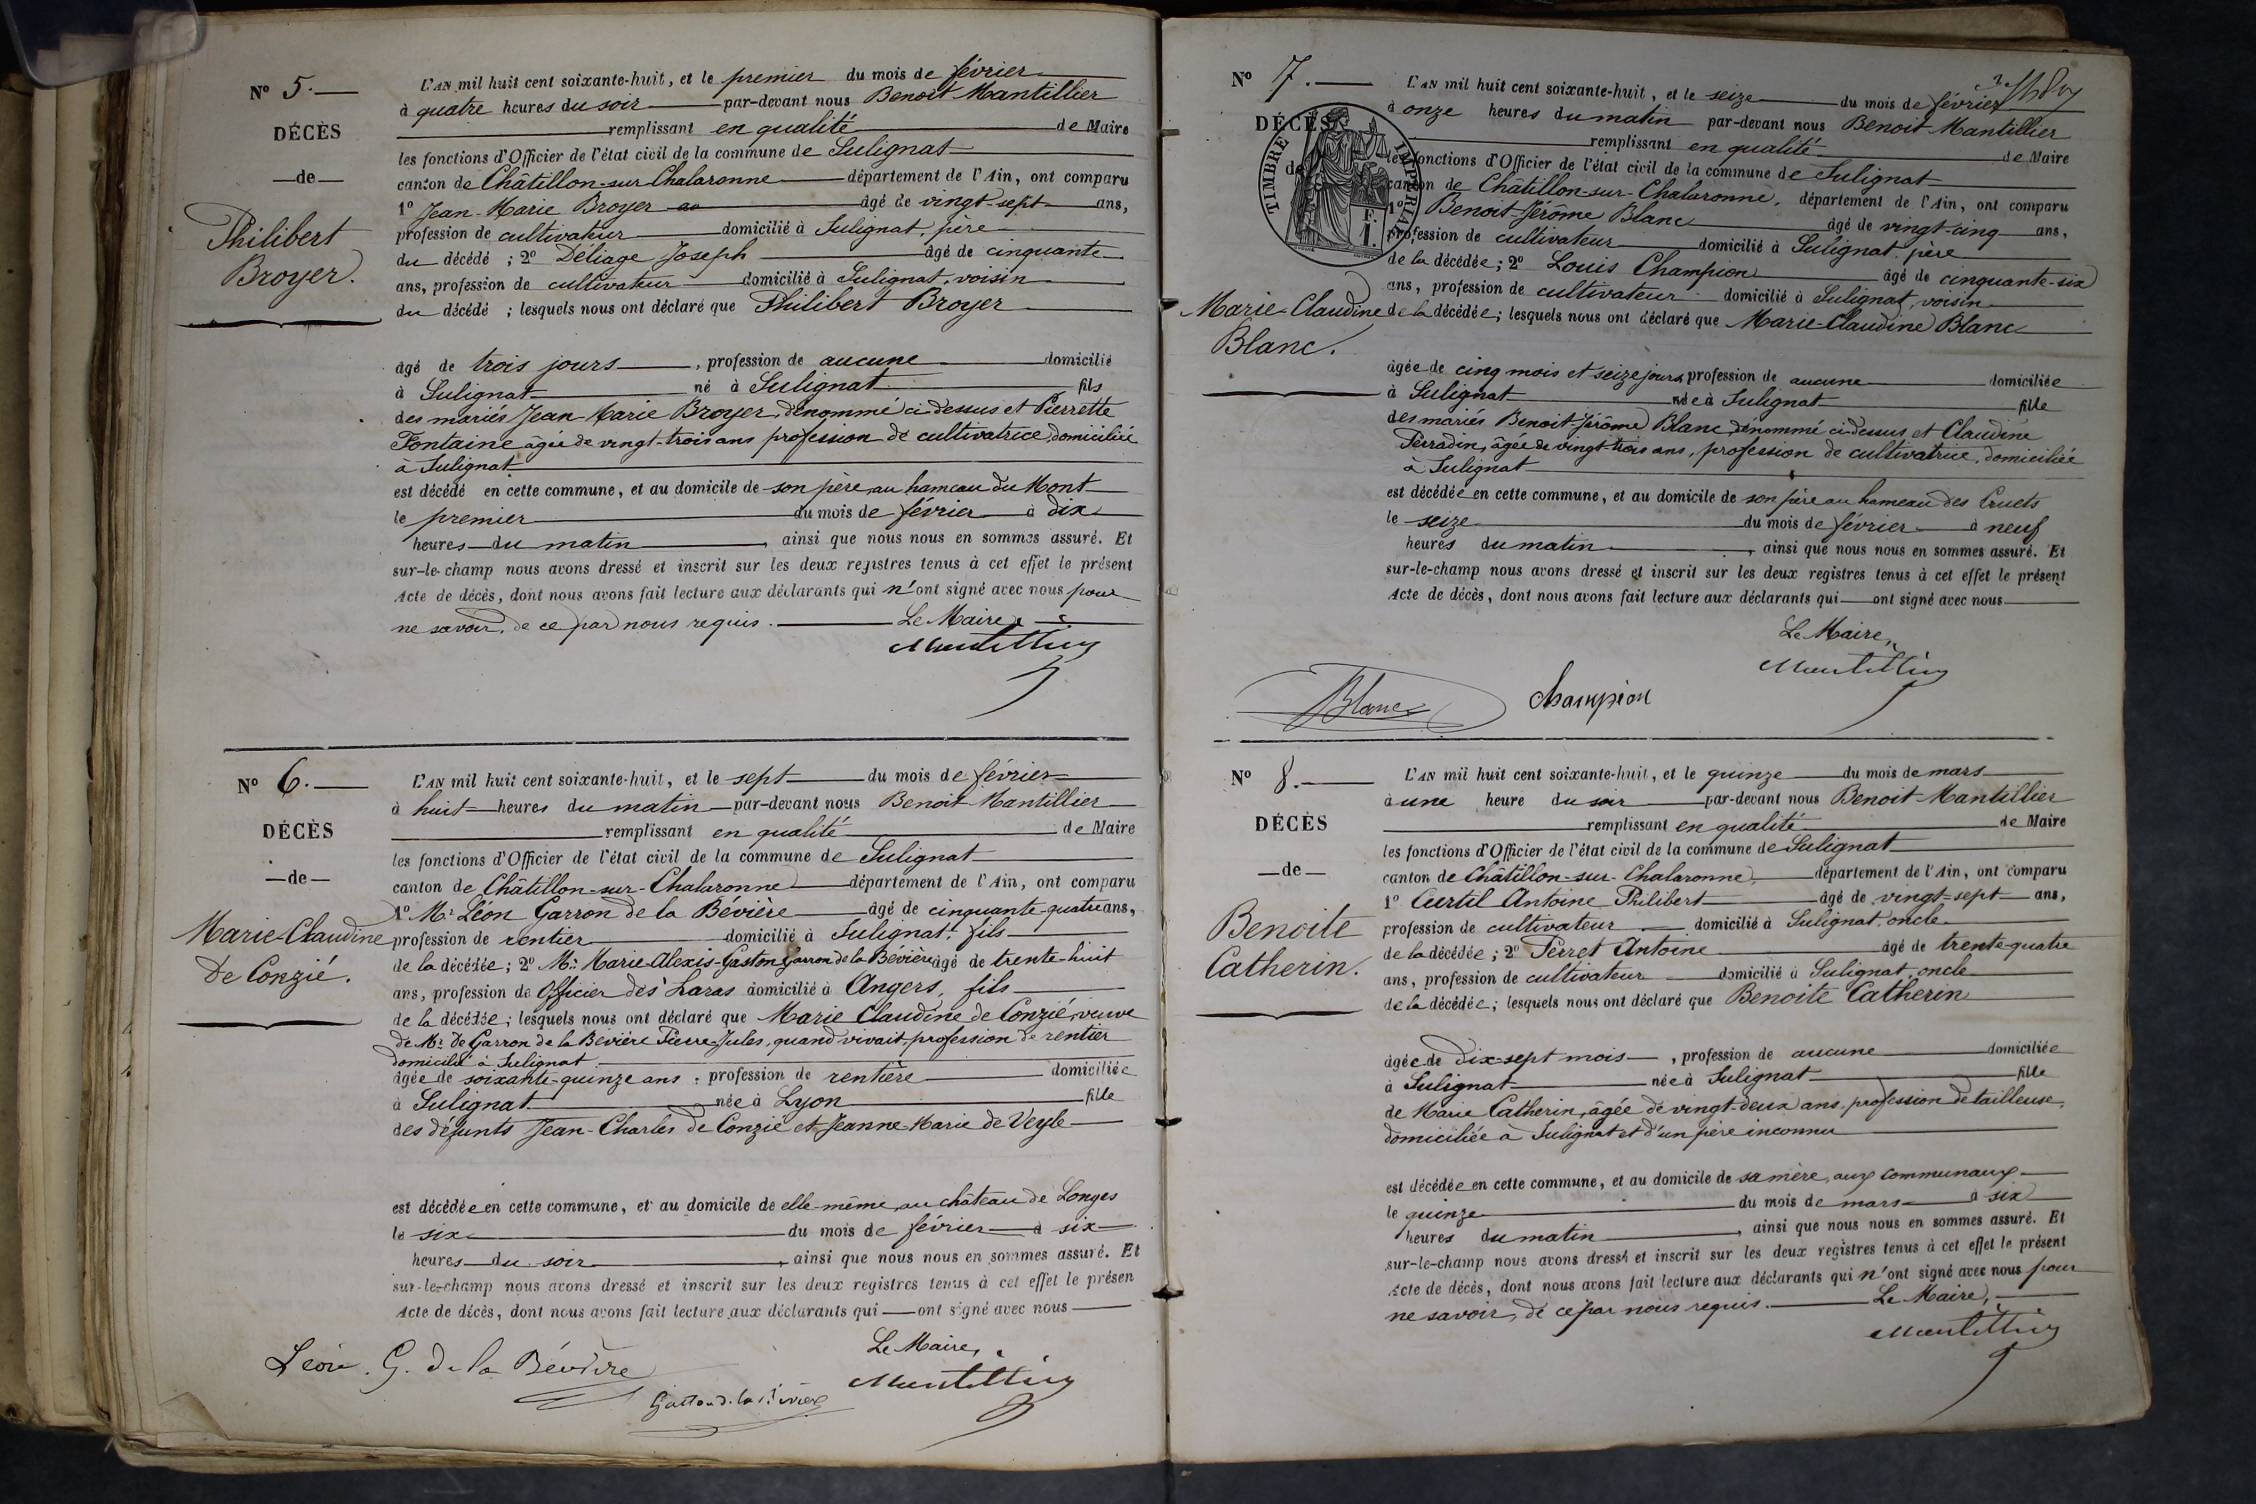 N° 5.
DÉCÈS
de
Philibert
Broyer.
L'AN mil huit cent soixante-huit, et le premier du mois de février
à quatre heures du soir par-devant nous Benoit Mantillier
remplissant en qualité de Maire
les fonctions d'Officier de l'état civil de la commune de Sulignat
canton de Châtillon-sur-Chalaronne département de l'Ain, ont comparu
1° Jean-Marie Broyer âgé de vingt-sept ans,
profession de cultivateur domicilié à Sulignat, père
du décédé ; 2° Déliage Joseph âgé de cinquante
ans, profession de cultivateur domicilié à Sulignat, voisin
du décédé ; lesquels nous ont déclaré que Philibert Broyer
âgé de trois jours, profession de aucune domicilié
à Sulignat né à Sulignat fils
des mariés Jean-Marie Broyer, dénommé ci-dessus et Pierrette
Fontaine âgée de vingt-trois ans profession de cultivatrice, domiciliée
à Sulignat
est décédé en cette commune, et au domicile de son père, au hameau du Mont
le premier du mois de février à dix
heures du matin, ainsi que nous nous en sommes assuré. Et
sur-le-champ nous avons dressé et inscrit sur les deux registres tenus à cet effet le présent
Acte de décès, dont nous avons fait lecture aux déclarants qui n'ont signé avec nous pour
ne savoir, de ce par nous requis. Le Maire,
Mantillier
N° 6.
DÉCÈS
de
Marie-Claudine
de Conzié.
L'AN mil huit cent soixante-huit, et le sept du mois de février
à huit heures du matin par-devant nous Benoit Mantillier
remplissant en qualité de Maire
les fonctions d'Officier de l'état civil de la commune de Sulignat
canton de Châtillon-sur-Chalaronne département de l'Ain, ont comparu
1° Mr Léon Garron de la Bévière âgé de cinquante-quatre ans,
profession de rentier domicilié à Sulignat, fils
de la décédée ; 2° Mr Marie-Alexis-Gaston Garron de la Bévière âgé de trente-huit
ans, profession de Officier des haras domicilié à Angers, fils
de la décédée ; lesquels nous ont déclaré que Marie Claudine de Conzié, veuve
de Mr de Garron de la Bévière Pierre-Jules, quand vivait, profession de rentier
domicilié à Sulignat
âgée de soixante-quinze ans, profession de rentière domiciliée
à Sulignat née à Lyon fille
des défunts Jean-Charles de Conzié et Jeanne-Marie de Veyle
est décédée en cette commune, et au domicile de elle-même, au château de Longes
le six du mois de février à six
heures du soir, ainsi que nous nous en sommes assuré. Et
sur-le-champ nous avons dressé et inscrit sur les deux registres tenus à cet effet le présen
Acte de décès, dont nous avons fait lecture aux déclarants qui ont signé avec nous
Le Maire,
Léon. G. de la Bévière
Gaston de la Bévière
Mantillier
N° 7.
DÉCÈS
de
TIMBRE IMPÉRIAL
F.
1.
Marie-Claudine
Blanc.
L'AN mil huit cent soixante-huit, et le seize du mois de février
à onze heures du matin par-devant nous Benoit Mantillier
remplissant en qualité de Maire
les fonctions d'Officier de l'état civil de la commune de Sulignat
canton de Châtillon-sur-Chalaronne, département de l'Ain, ont comparu
1° Benoit-Jérôme Blanc âgé de vingt-cinq ans,
profession de cultivateur domicilié à Sulignat, père
de la décédée ; 2° Louis Champion âgé de cinquante-six
ans, profession de cultivateur domicilié à Sulignat, voisin
de la décédée ; lesquels nous ont déclaré que Marie-Claudine Blanc
âgée de cinq mois et seize jours, profession de aucune domiciliée
à Sulignat née à Sulignat fille
des mariés Benoit-Jérôme Blanc, dénommé ci-dessus et Claudine
Perradin, âgée de vingt-trois ans, profession de cultivatrice, domiciliée
à Sulignat
est décédée en cette commune, et au domicile de son père au hameau des Cruets
le seize du mois de février à neuf
heures du matin, ainsi que nous nous en sommes assuré. Et
sur-le-champ nous avons dressé et inscrit sur les deux registres tenus à cet effet le présent
Acte de décès, dont nous avons fait lecture aux déclarants qui ont signé avec nous
Le Maire,
Mantillier
Blanc Champion
N° 8.
DÉCÈS
de
Benoite
Catherin.
L'AN mil huit cent soixante-huit, et le quinze du mois de mars
à une heure du soir par-devant nous Benoit Mantillier
remplissant en qualité de Maire
les fonctions d'Officier de l'état civil de la commune de Sulignat
canton de Châtillon-sur-Chalaronne, département de l'Ain, ont comparu
1° Curtil Antoine Philibert âgé de vingt-sept ans,
profession de cultivateur domicilié à Sulignat, oncle
de la décédée ; 2° Perret Antoine âgé de trente-quatre
ans, profession de cultivateur domicilié à Sulignat, oncle
de la décédée ; lesquels nous ont déclaré que Benoite Catherin
âgée de dix-sept mois, profession de aucune domiciliée
à Sulignat née à Sulignat fille
de Marie Catherin, âgée de vingt-deux ans, profession de tailleuse,
domiciliée à Sulignat et d'un père inconnu
est décédée en cette commune, et au domicile de sa mère, aux communaux
le quinze du mois de mars à six
heures du matin, ainsi que nous nous en sommes assuré. Et
sur-le-champ nous avons dressé et inscrit sur les deux registres tenus à cet effet le présent
Acte de décès, dont nous avons fait lecture aux déclarants qui n'ont signé avec nous pour
ne savoir, de ce par nous requis. Le Maire,
Mantillier